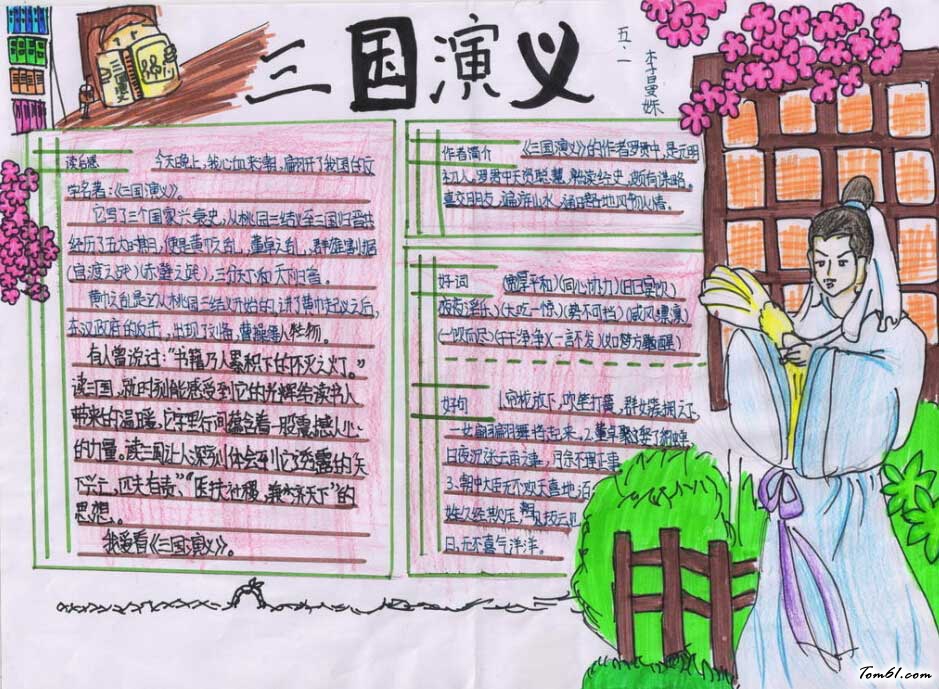 三国演义
五.一
李曼姝
三国演义
读后感 今天晚上,我心血来潮,翻开了我国的文
学名著:《三国演义》。
它写了三个国家兴衰史,从桃园三结义至三国归晋共
经历了五大时期,便是黄巾之乱,董卓之乱,群雄割据
(官渡之延)(赤壁之延),三分天下和天下归晋。
黄巾之乱是以从桃园三结义开始的,讲了黄巾起义之后,
在汉政府的反击,出现了刘备,曹操等人物。
有人曾说过:“书籍乃人累积下的不灭之灯。”
读三国,就时刻能感受到它的光辉给读书人
带来的温暖。它字里行间蕴含着一股震撼人心
的力量。读三国让人深刻体会到它透露的“天
下兴亡,匹夫有责”、“匡扶社稷,兼济天下”的
思想。
我爱看《三国演义》。
作者简介 《三国演义》的作者罗贯中,是元明
初人。罗贯中天资聪慧,熟读经史,颇有谋略。
喜交朋友,遍游山水,通晓各地风俗人情。
好词 (宽厚平和)(同心协力)(旧日宴饮)
夜夜淫乐)(大吃一惊)(势不可挡)(威风凛凛)
(一饮而尽)(干干净净)(一言不发)(如梦方醒)
好句 1.帘栊放下,吹笙打簧,群女簇拥之下,
一女翩翩翩舞将起来。2.董卓娶这
日夜沉 云雨之事,月余不理正事
3、朝中大臣无不欢天喜地
姓久经欺压,
日,无不喜气洋洋。
Tom61.com